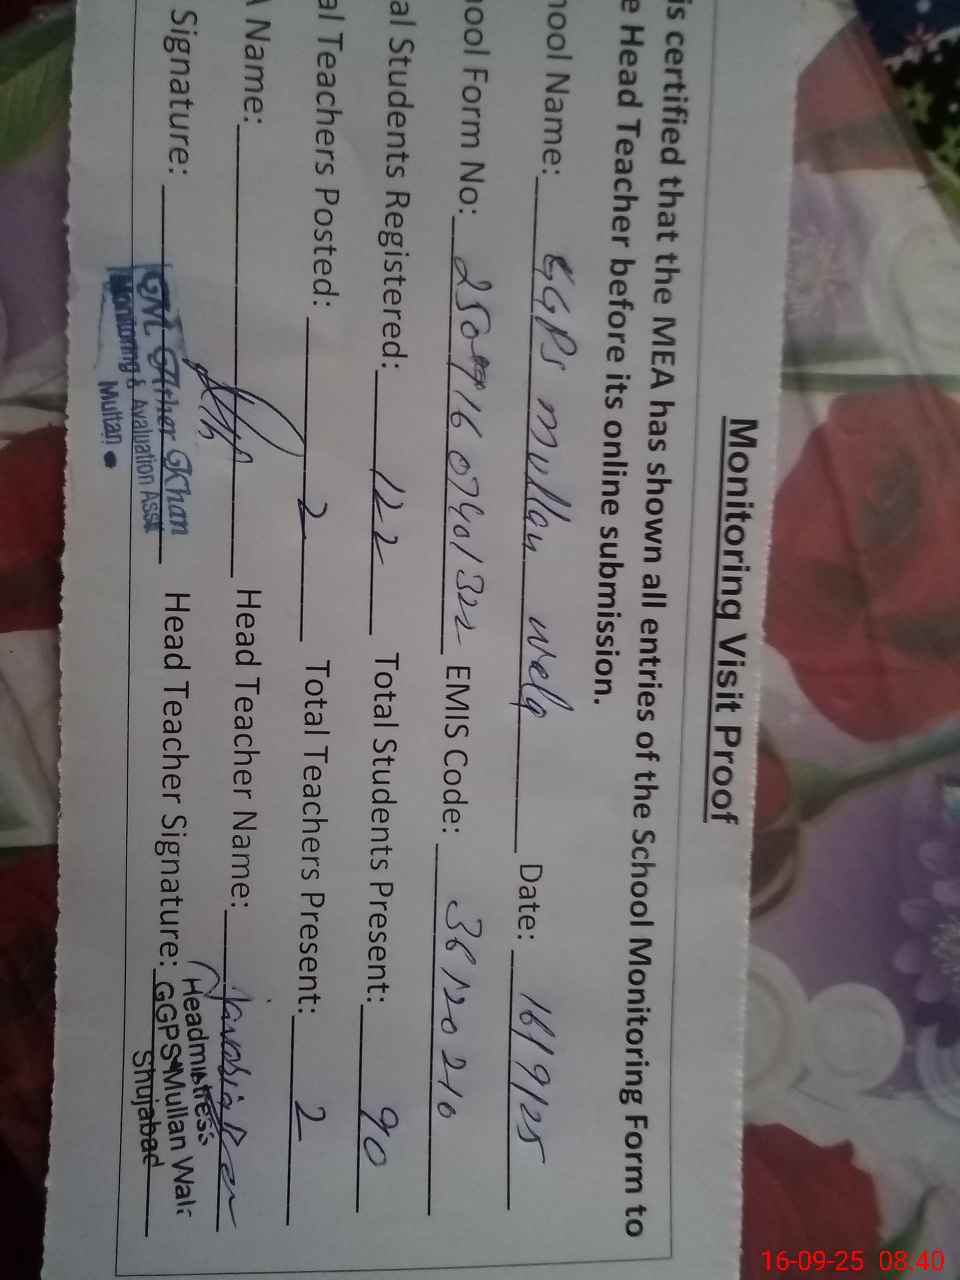 Monitoring Visit Proof
is certified that the MEA has shown all entries of the School Monitoring Form to
e Head Teacher before its online submission.
hool Name: GGPS Mullan Wala Date: 16/9/25
ool Form No: EMIS Code: 36120210
al Students Registered: 122 Total Students Present: 90
al Teachers Posted: 2 Total Teachers Present: 2
A Name: Head Teacher Name:
Signature: Head Teacher Signature:
Ather Khan
Monitoring & Avaluation Asst
Multan
Headmistress
GGPS Mullan Wala
Shujabad
16-09-25 08:40